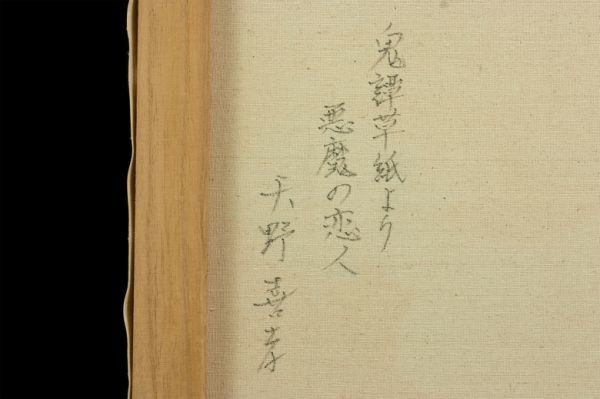 鬼譚草紙より
悪魔の恋人
天野喜孝